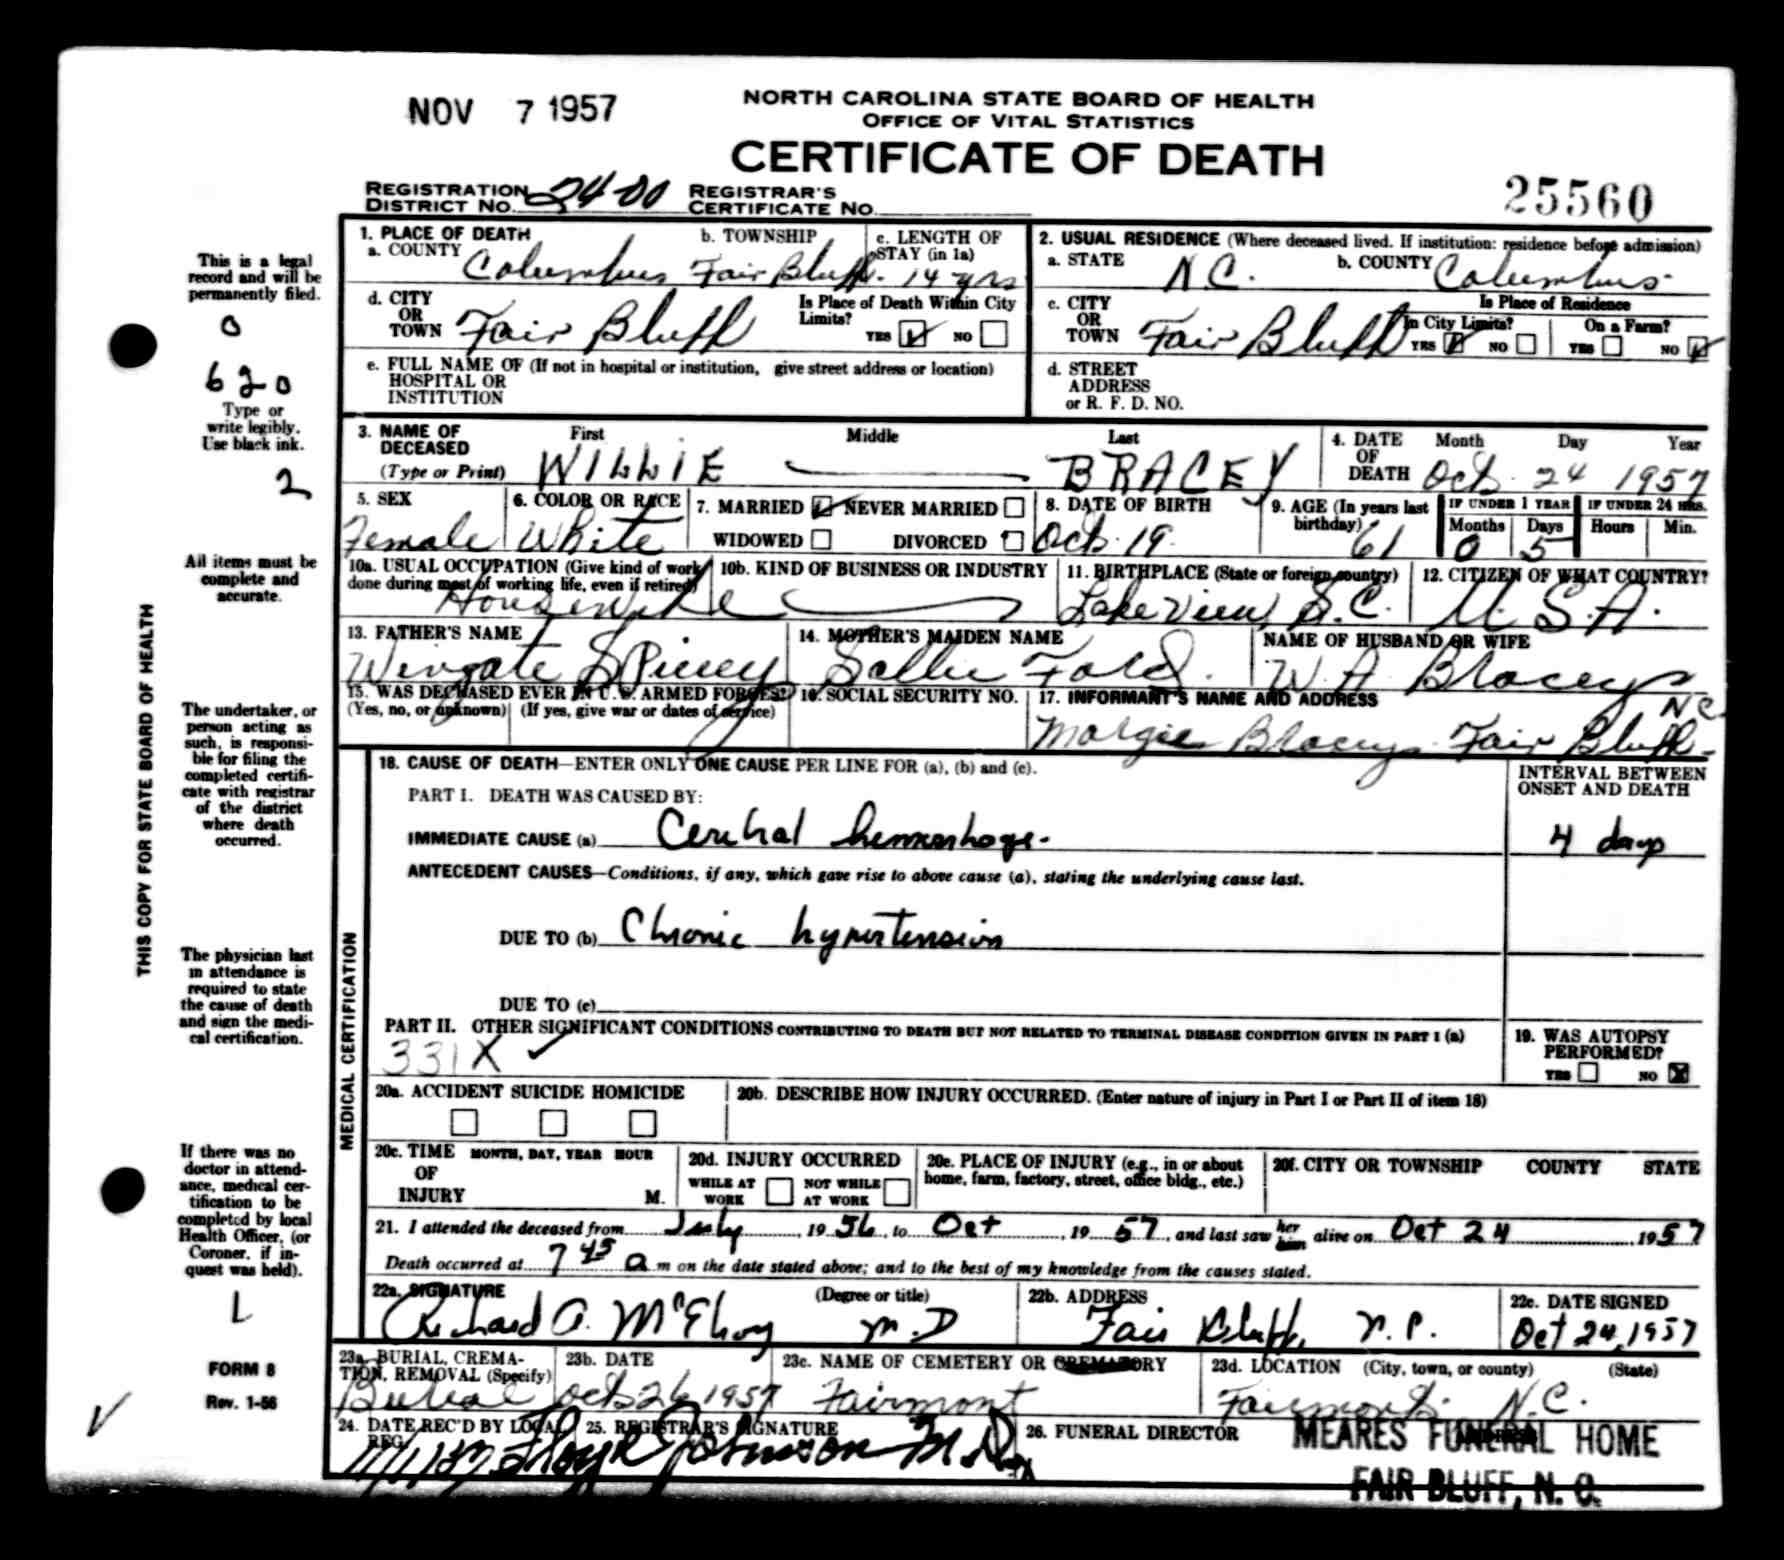 NOV 7 1957
NORTH CAROLINA STATE BOARD OF HEALTH
OFFICE OF VITAL STATISTICS
CERTIFICATE OF DEATH
25560
REGISTRATION DISTRICT NO. 24-00 REGISTRAR'S CERTIFICATE NO.
THIS COPY FOR STATE BOARD OF HEALTH
This is a legal
record and will be
permanently filed.
0
620
Type or
write legibly.
Use black ink.
2
All items must be
complete and
accurate.
The undertaker, or
person acting as
such, is responsi-
ble for filing the
completed certifi-
cate with registrar
of the district
where death
occurred.
The physician last
in attendance is
required to state
the cause of death
and sign the medi-
cal certification.
If there was no
doctor in attend-
ance, medical cer-
tification to be
completed by local
Health Officer, (or
Coroner, if in-
quest was held).
L
FORM 8
Rev. 1-56
1. PLACE OF DEATH
a. COUNTY Columbus b. TOWNSHIP Fair Bluff c. LENGTH OF STAY (in 1a) 14 yrs
2. USUAL RESIDENCE (Where deceased lived. If institution: residence before admission)
a. STATE N.C. b. COUNTY Columbus
d. CITY OR TOWN Fair Bluff Is Place of Death Within City Limits? YES NO
c. CITY OR TOWN Fair Bluff Is Place of Residence In City Limits? YES NO On a Farm? YES NO
e. FULL NAME OF (If not in hospital or institution, give street address or location) HOSPITAL OR INSTITUTION
d. STREET ADDRESS or R. F. D. NO.
3. NAME OF DECEASED (Type or Print) First WILLIE Middle Last BRACEY
4. DATE OF DEATH Month Day Year Oct. 24 1957
5. SEX Female
6. COLOR OR RACE White
7. MARRIED NEVER MARRIED WIDOWED DIVORCED
8. DATE OF BIRTH Oct. 19
9. AGE (In years last birthday) 61 IF UNDER 1 YEAR Months 0 Days 5 IF UNDER 24 HRS. Hours Min.
10a. USUAL OCCUPATION (Give kind of work done during most of working life, even if retired) Housewife
10b. KIND OF BUSINESS OR INDUSTRY
11. BIRTHPLACE (State or foreign country) Lake View, S.C.
12. CITIZEN OF WHAT COUNTRY? U.S.A.
13. FATHER'S NAME Wingate Spivey
14. MOTHER'S MAIDEN NAME Sallie Ford
NAME OF HUSBAND OR WIFE W. A. Bracey
15. WAS DECEASED EVER IN U. S. ARMED FORCES? (Yes, no, or unknown) (If yes, give war or dates of service)
16. SOCIAL SECURITY NO.
17. INFORMANT'S NAME AND ADDRESS Margie Bracey Fair Bluff NC
MEDICAL CERTIFICATION
18. CAUSE OF DEATH—ENTER ONLY ONE CAUSE PER LINE FOR (a), (b) and (c).
INTERVAL BETWEEN ONSET AND DEATH
PART I. DEATH WAS CAUSED BY:
IMMEDIATE CAUSE (a) Cerebral hemorrhage. 4 days
ANTECEDENT CAUSES—Conditions, if any, which gave rise to above cause (a), stating the underlying cause last.
DUE TO (b) Chronic hypertension
DUE TO (c)
PART II. OTHER SIGNIFICANT CONDITIONS CONTRIBUTING TO DEATH BUT NOT RELATED TO TERMINAL DISEASE CONDITION GIVEN IN PART I (a)
331X
19. WAS AUTOPSY PERFORMED? YES NO
20a. ACCIDENT SUICIDE HOMICIDE
20b. DESCRIBE HOW INJURY OCCURRED. (Enter nature of injury in Part I or Part II of item 18)
20c. TIME OF INJURY MONTH, DAY, YEAR HOUR M.
20d. INJURY OCCURRED WHILE AT WORK NOT WHILE AT WORK
20e. PLACE OF INJURY (e.g., in or about home, farm, factory, street, office bldg., etc.)
20f. CITY OR TOWNSHIP COUNTY STATE
21. I attended the deceased from July, 1956, to Oct, 1957, and last saw her him alive on Oct 24 1957
Death occurred at 7 45 a m on the date stated above; and to the best of my knowledge from the causes stated.
22a. SIGNATURE (Degree or title) Richard A. McElroy M.D
22b. ADDRESS Fair Bluff, N.C.
22c. DATE SIGNED Oct 24, 1957
23a. BURIAL, CREMATION, REMOVAL (Specify) Burial
23b. DATE Oct 26, 1957
23c. NAME OF CEMETERY OR CREMATORY Fairmont
23d. LOCATION (City, town, or county) (State) Fairmont N.C.
24. DATE REC'D BY LOCAL REG. 11/1/57
25. REGISTRAR'S SIGNATURE Floyd Johnson M.D.
26. FUNERAL DIRECTOR MEARES FUNERAL HOME
FAIR BLUFF, N. C.